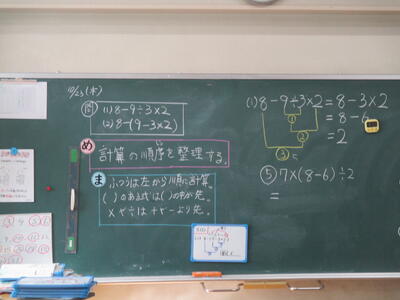 10/23(木)
問 (1) 8-9÷3×2
(2) 8-(9-3×2)
め 計算の順序を整理する。
ま ふつうは左から順に計算。
( )のある式は( )の中が先。
×や÷は+や-より先。
(1) 8-9÷3×2=8-3×2
=8-6
=2
①
②
③
⑤ 7×(8-6)÷2
=